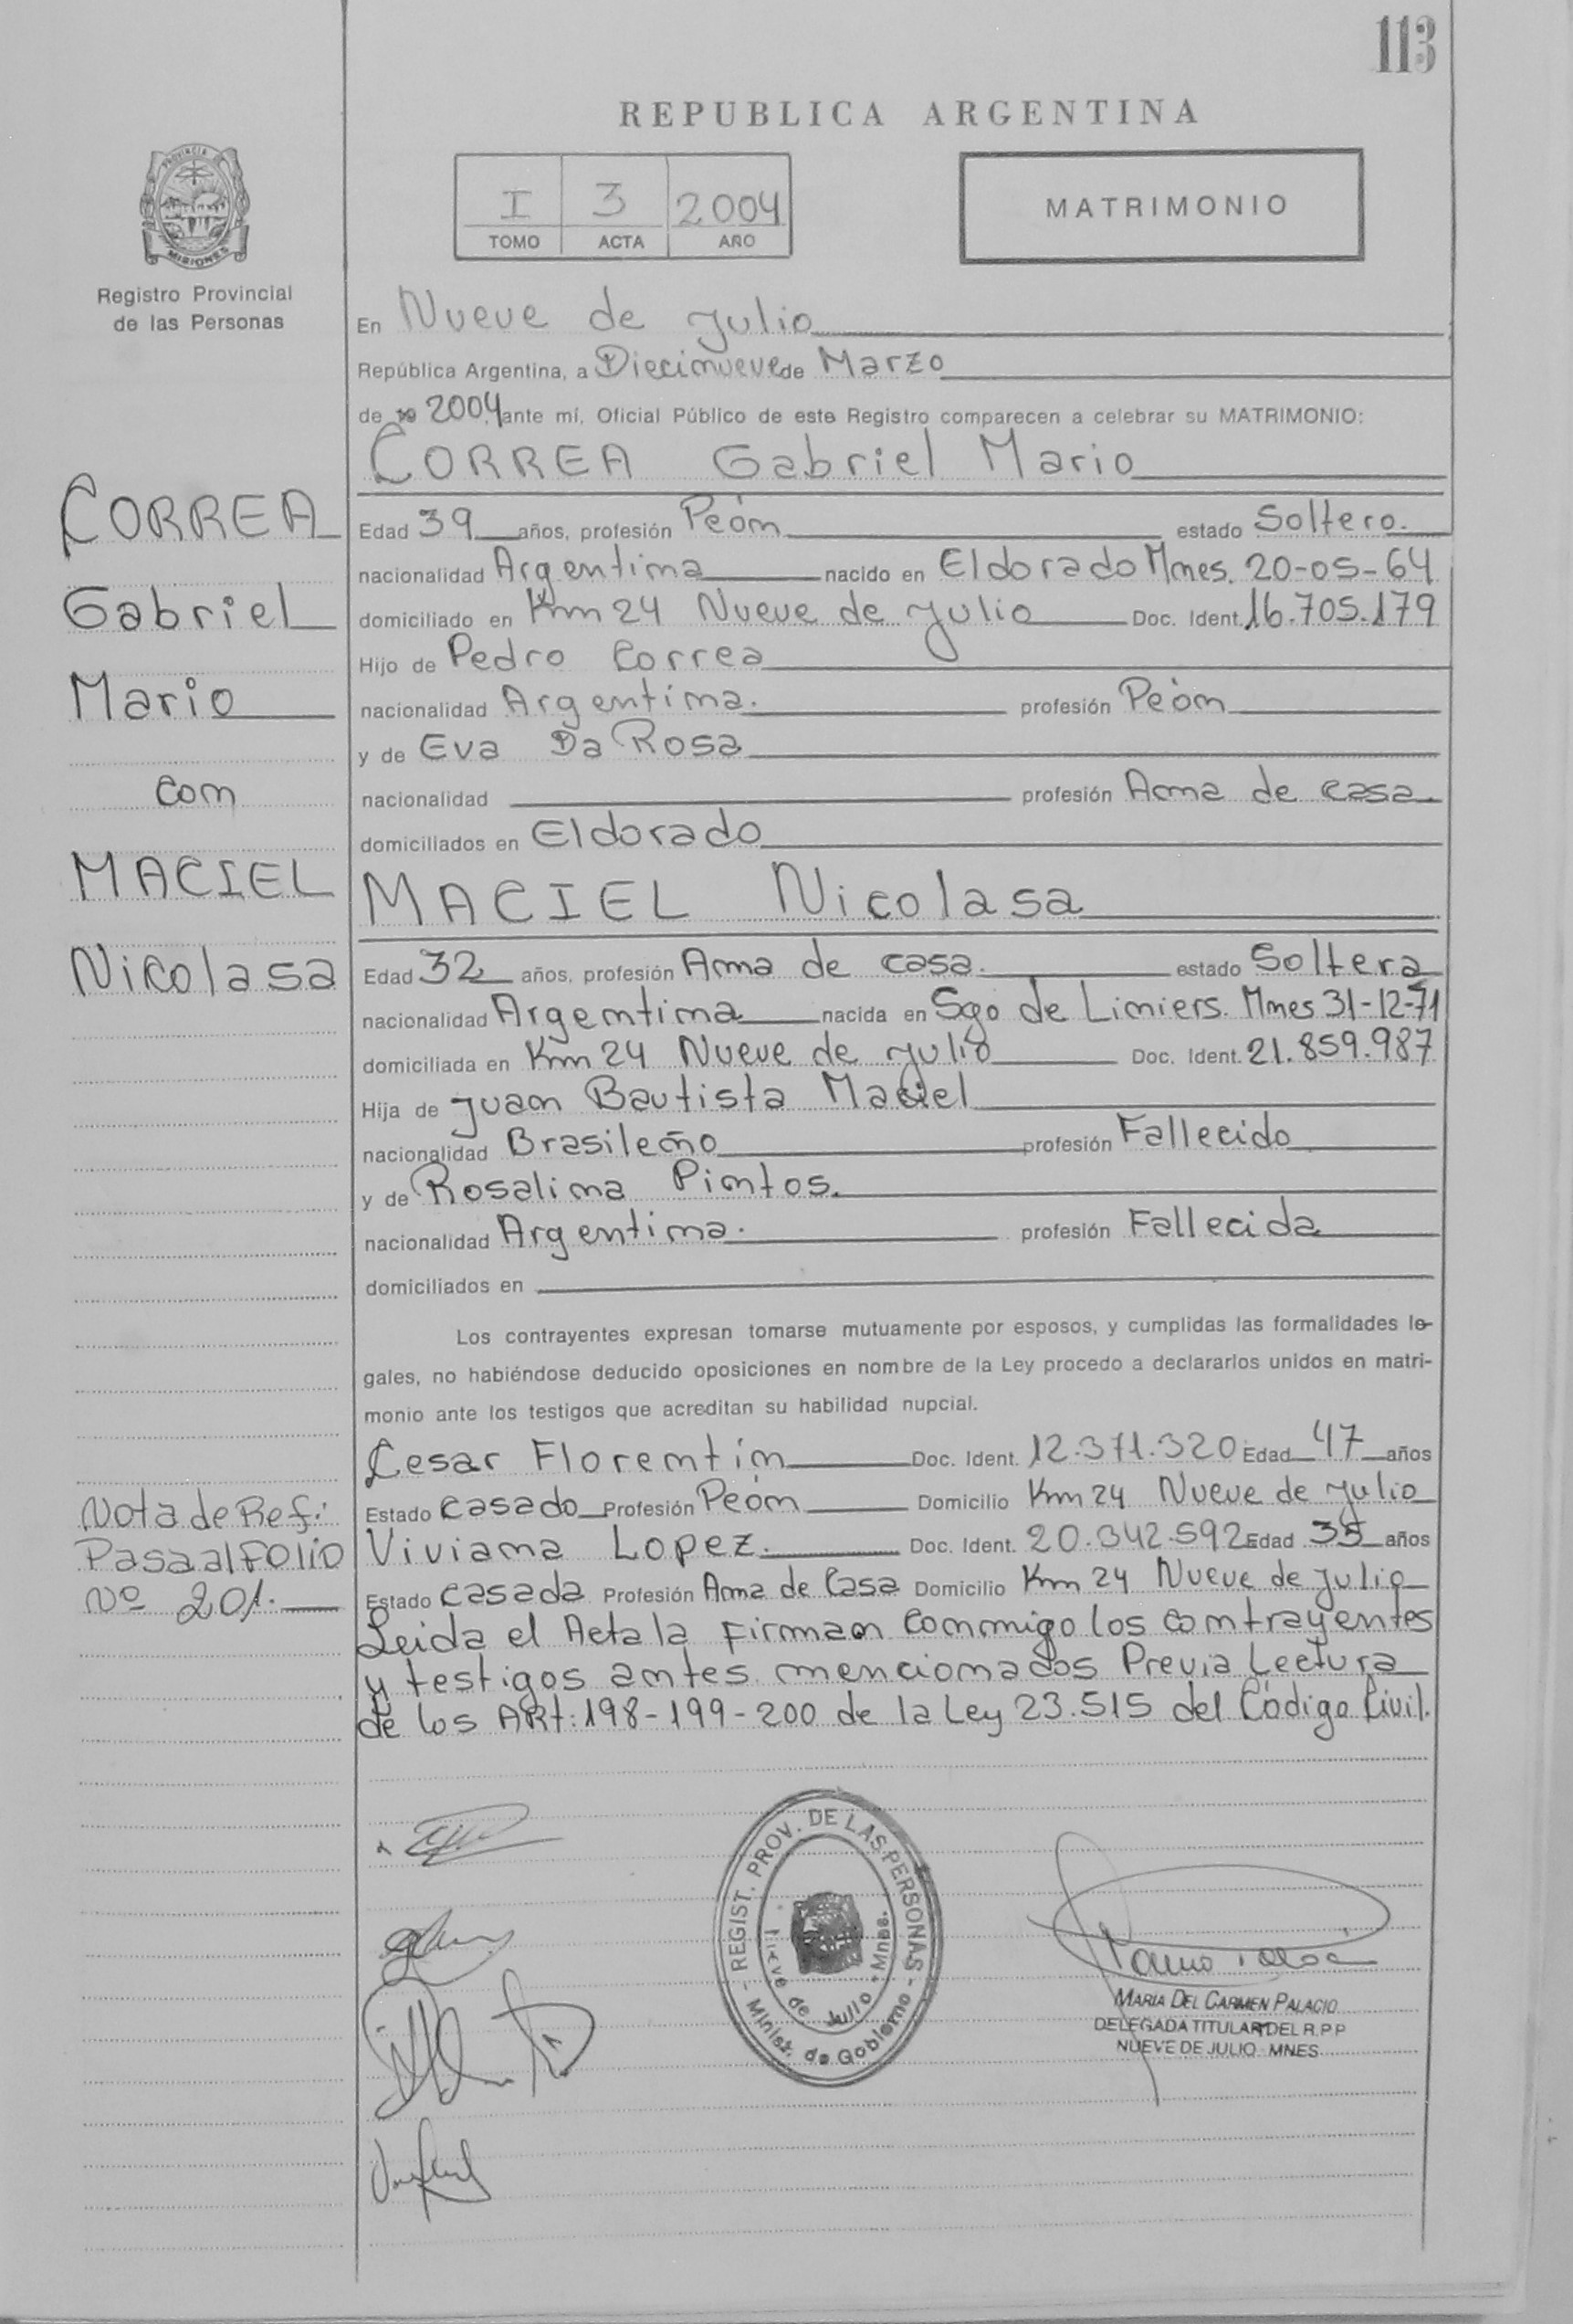 113
REPUBLICA ARGENTINA
PROVINCIA DE
MISIONES
Registro Provincial
de las Personas
I 3 2004
TOMO ACTA AÑO
MATRIMONIO
En Nueve de Julio
República Argentina, a Diecinueve de Marzo
de 19 2004, ante mí, Oficial Público de este Registro comparecen a celebrar su MATRIMONIO:
CORREA Gabriel Mario
Edad 39 años, profesión Peón estado Soltero.
nacionalidad Argentina nacido en Eldorado Mnes. 20-05-64
domiciliado en Km 24 Nueve de Julio Doc. Ident. 16.705.179
Hijo de Pedro Correa
nacionalidad Argentina. profesión Peón
y de Eva Da Rosa
nacionalidad profesión Ama de casa.
domiciliados en Eldorado
MACIEL Nicolasa
Edad 32 años, profesión Ama de casa. estado Soltera
nacionalidad Argentina nacida en Sgo de Liniers. Mnes 31-12-71
domiciliada en Km 24 Nueve de Julio Doc. Ident. 21.859.987
Hija de Juan Bautista Maciel
nacionalidad Brasileño profesión Fallecido
y de Rosalina Pintos.
nacionalidad Argentina. profesión Fallecida
domiciliados en
Los contrayentes expresan tomarse mutuamente por esposos, y cumplidas las formalidades le-
gales, no habiéndose deducido oposiciones en nombre de la Ley procedo a declararlos unidos en matri-
monio ante los testigos que acreditan su habilidad nupcial.
Cesar Florentín Doc. Ident. 12.371.320 Edad 47 años
Estado Casado Profesión Peón Domicilio Km 24 Nueve de Julio
Viviana Lopez. Doc. Ident. 20.342.592 Edad 35 años
Estado Casada Profesión Ama de Casa Domicilio Km 24 Nueve de Julio
Leida el Acta la Firman Conmigo los contrayentes
y testigos antes mencionados Previa Lectura
de los ARt: 198-199-200 de la Ley 23.515 del Código Civil.
CORREA
Gabriel
Mario
con
MACIEL
Nicolasa
Nota de Ref:
Pasa al Folio
Nº 201.
REGIST. PROV. DE LAS PERSONAS
Minist. de Gobierno
Nueve de Julio - Mnes.
MARIA DEL CARMEN PALACIO
DELEGADA TITULAR DEL R.P.P
NUEVE DE JULIO MNES